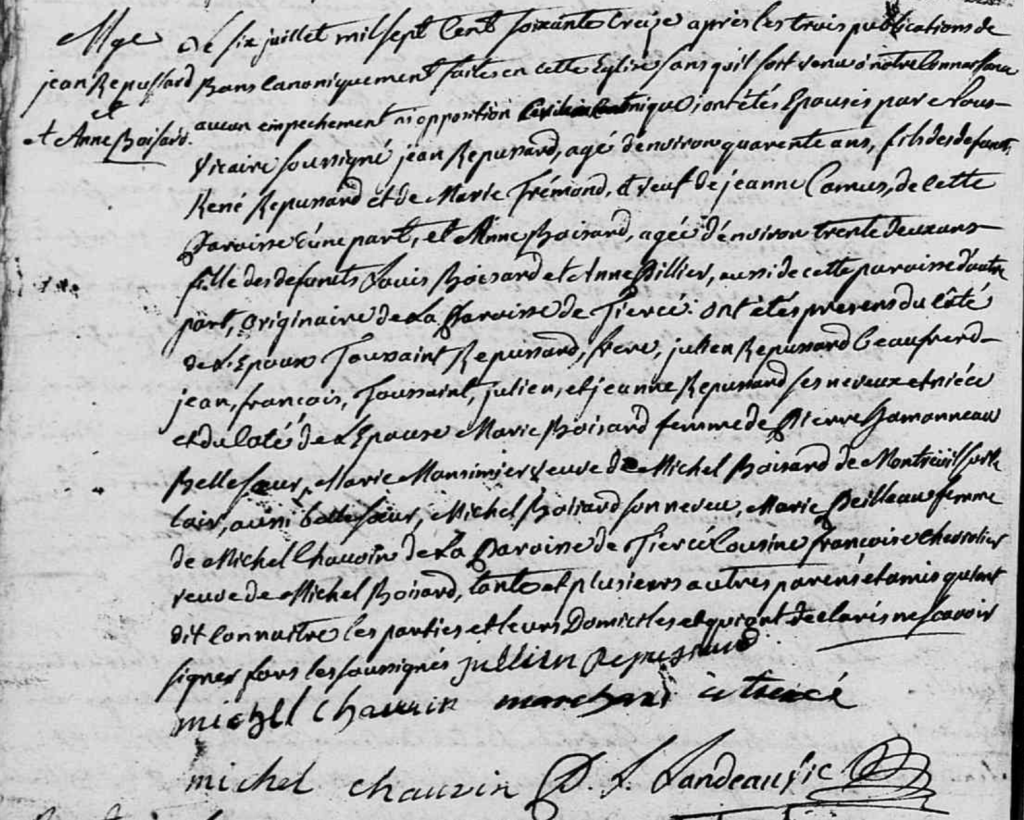 Mge
jean Repussard
et
et Anne Boisard.
Le six juillet mil sept Cent soixante treize après les trois publications de
Bans Canoniquement faites en cette Eglise sans quil soit venu à notre Connoissance
aucun empechement ni opposition ont étés Epousés par Nous
Vicaire soussigné jean Repussard, agé d'environ quarente ans, fils des defunts
René Repussard et de Marie Trémond, et veuf de jeanne Camus, de cette
Paroisse d'une part, et Anne Boisard, agée d'environ trente deux ans
fille des defunts Louis Boisard et Anne Billier, aussi de cette paroisse d'autre
part, originaire de La Paroisse de Tiercé: ont étés presens du côté
de L'Epoux Toussaint Repussard, frere, julien Repussard beaufrere
jean, francois, Toussaint, julien, et jeanne Repussard ses neveux et niéce
et du coté de L'Epouse Marie Boisard femme de Pierre Hamonneau
Belle sœur, Marie Mansimier veuve de Michel Boisard de Montreuil sur le
loir, aussi belle sœur, Michel Boisard son neveu, Marie Beilleau femme
de Michel Chauvin de La Paroisse de Tiercé Cousine françoise Chevrolier
veuve de Michel Boisard, tante et plusieurs autres parens et amis qui ont
dit Connaitre les parties et leurs Domiciles et qui ont declarés ne scavoir
signer fors les soussignés jullien Repussard
michel chauvin marchand à tiercé
michel chauvin P. L. Landeau vic